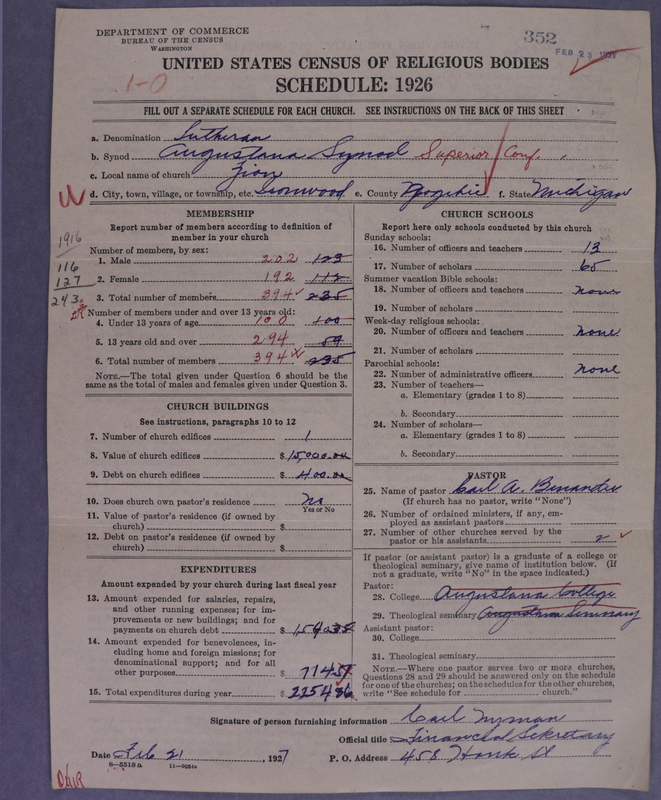 DEPARTMENT OF COMMERCE
BUREAU OF THE CENSUS
WASHINGTON
352
FEB 23 1927
1-0
UNITED STATES CENSUS OF RELIGIOUS BODIES
SCHEDULE: 1926
FILL OUT A SEPARATE SCHEDULE FOR EACH CHURCH. SEE INSTRUCTIONS ON THE BACK OF THIS SHEET
a. Denomination Lutheran
b. Synod Augustana Synod Superior Conf.
c. Local name of church Zion
d. City, town, village, or township, etc. Ironwood e. County Gogebic f. State Michigan
MEMBERSHIP
Report number of members according to definition of
member in your church
Number of members, by sex:
1. Male 202 123
2. Female 192 112
3. Total number of members 394 235
Number of members under and over 13 years old:
4. Under 13 years of age 100 100
5. 13 years old and over 294
6. Total number of members 394 235
NOTE.—The total given under Question 6 should be the
same as the total of males and females given under Question 3.
1916
116
127
243
CHURCH BUILDINGS
See instructions, paragraphs 10 to 12
7. Number of church edifices 1
8. Value of church edifices $ 15,000.00
9. Debt on church edifices $ 400.00
10. Does church own pastor's residence no
Yes or No
11. Value of pastor's residence (if owned by
church) $
12. Debt on pastor's residence (if owned by
church) $
EXPENDITURES
Amount expended by your church during last fiscal year
13. Amount expended for salaries, repairs,
and other running expenses; for im-
provements or new buildings; and for
payments on church debt $
14. Amount expended for benevolences, in-
cluding home and foreign missions; for
denominational support; and for all
other purposes $
15. Total expenditures during year $
CHURCH SCHOOLS
Report here only schools conducted by this church
Sunday schools:
16. Number of officers and teachers 13
17. Number of scholars 65
Summer vacation Bible schools:
18. Number of officers and teachers none
19. Number of scholars
Week-day religious schools:
20. Number of officers and teachers none
21. Number of scholars
Parochial schools:
22. Number of administrative officers none
23. Number of teachers—
a. Elementary (grades 1 to 8)
b. Secondary
24. Number of scholars—
a. Elementary (grades 1 to 8)
b. Secondary
PASTOR
25. Name of pastor Carl A. Benander
(If church has no pastor, write "None")
26. Number of ordained ministers, if any, em-
ployed as assistant pastors
27. Number of other churches served by the
pastor or his assistants 2
If pastor (or assistant pastor) is a graduate of a college or
theological seminary, give name of institution below. (If
not a graduate, write "No" in the space indicated.)
Pastor:
28. College Augustana College
29. Theological seminary Augustana Seminary
Assistant pastor:
30. College
31. Theological seminary
NOTE.—Where one pastor serves two or more churches,
Questions 28 and 29 should be answered only on the schedule
for one of the churches; on the schedules for the other churches,
write "See schedule for church."
Signature of person furnishing information Carl Nyman
Official title Financial Sekretary
Date Feb 21, 1927 P. O. Address 458 Honk St
8—5518a 11—9051a